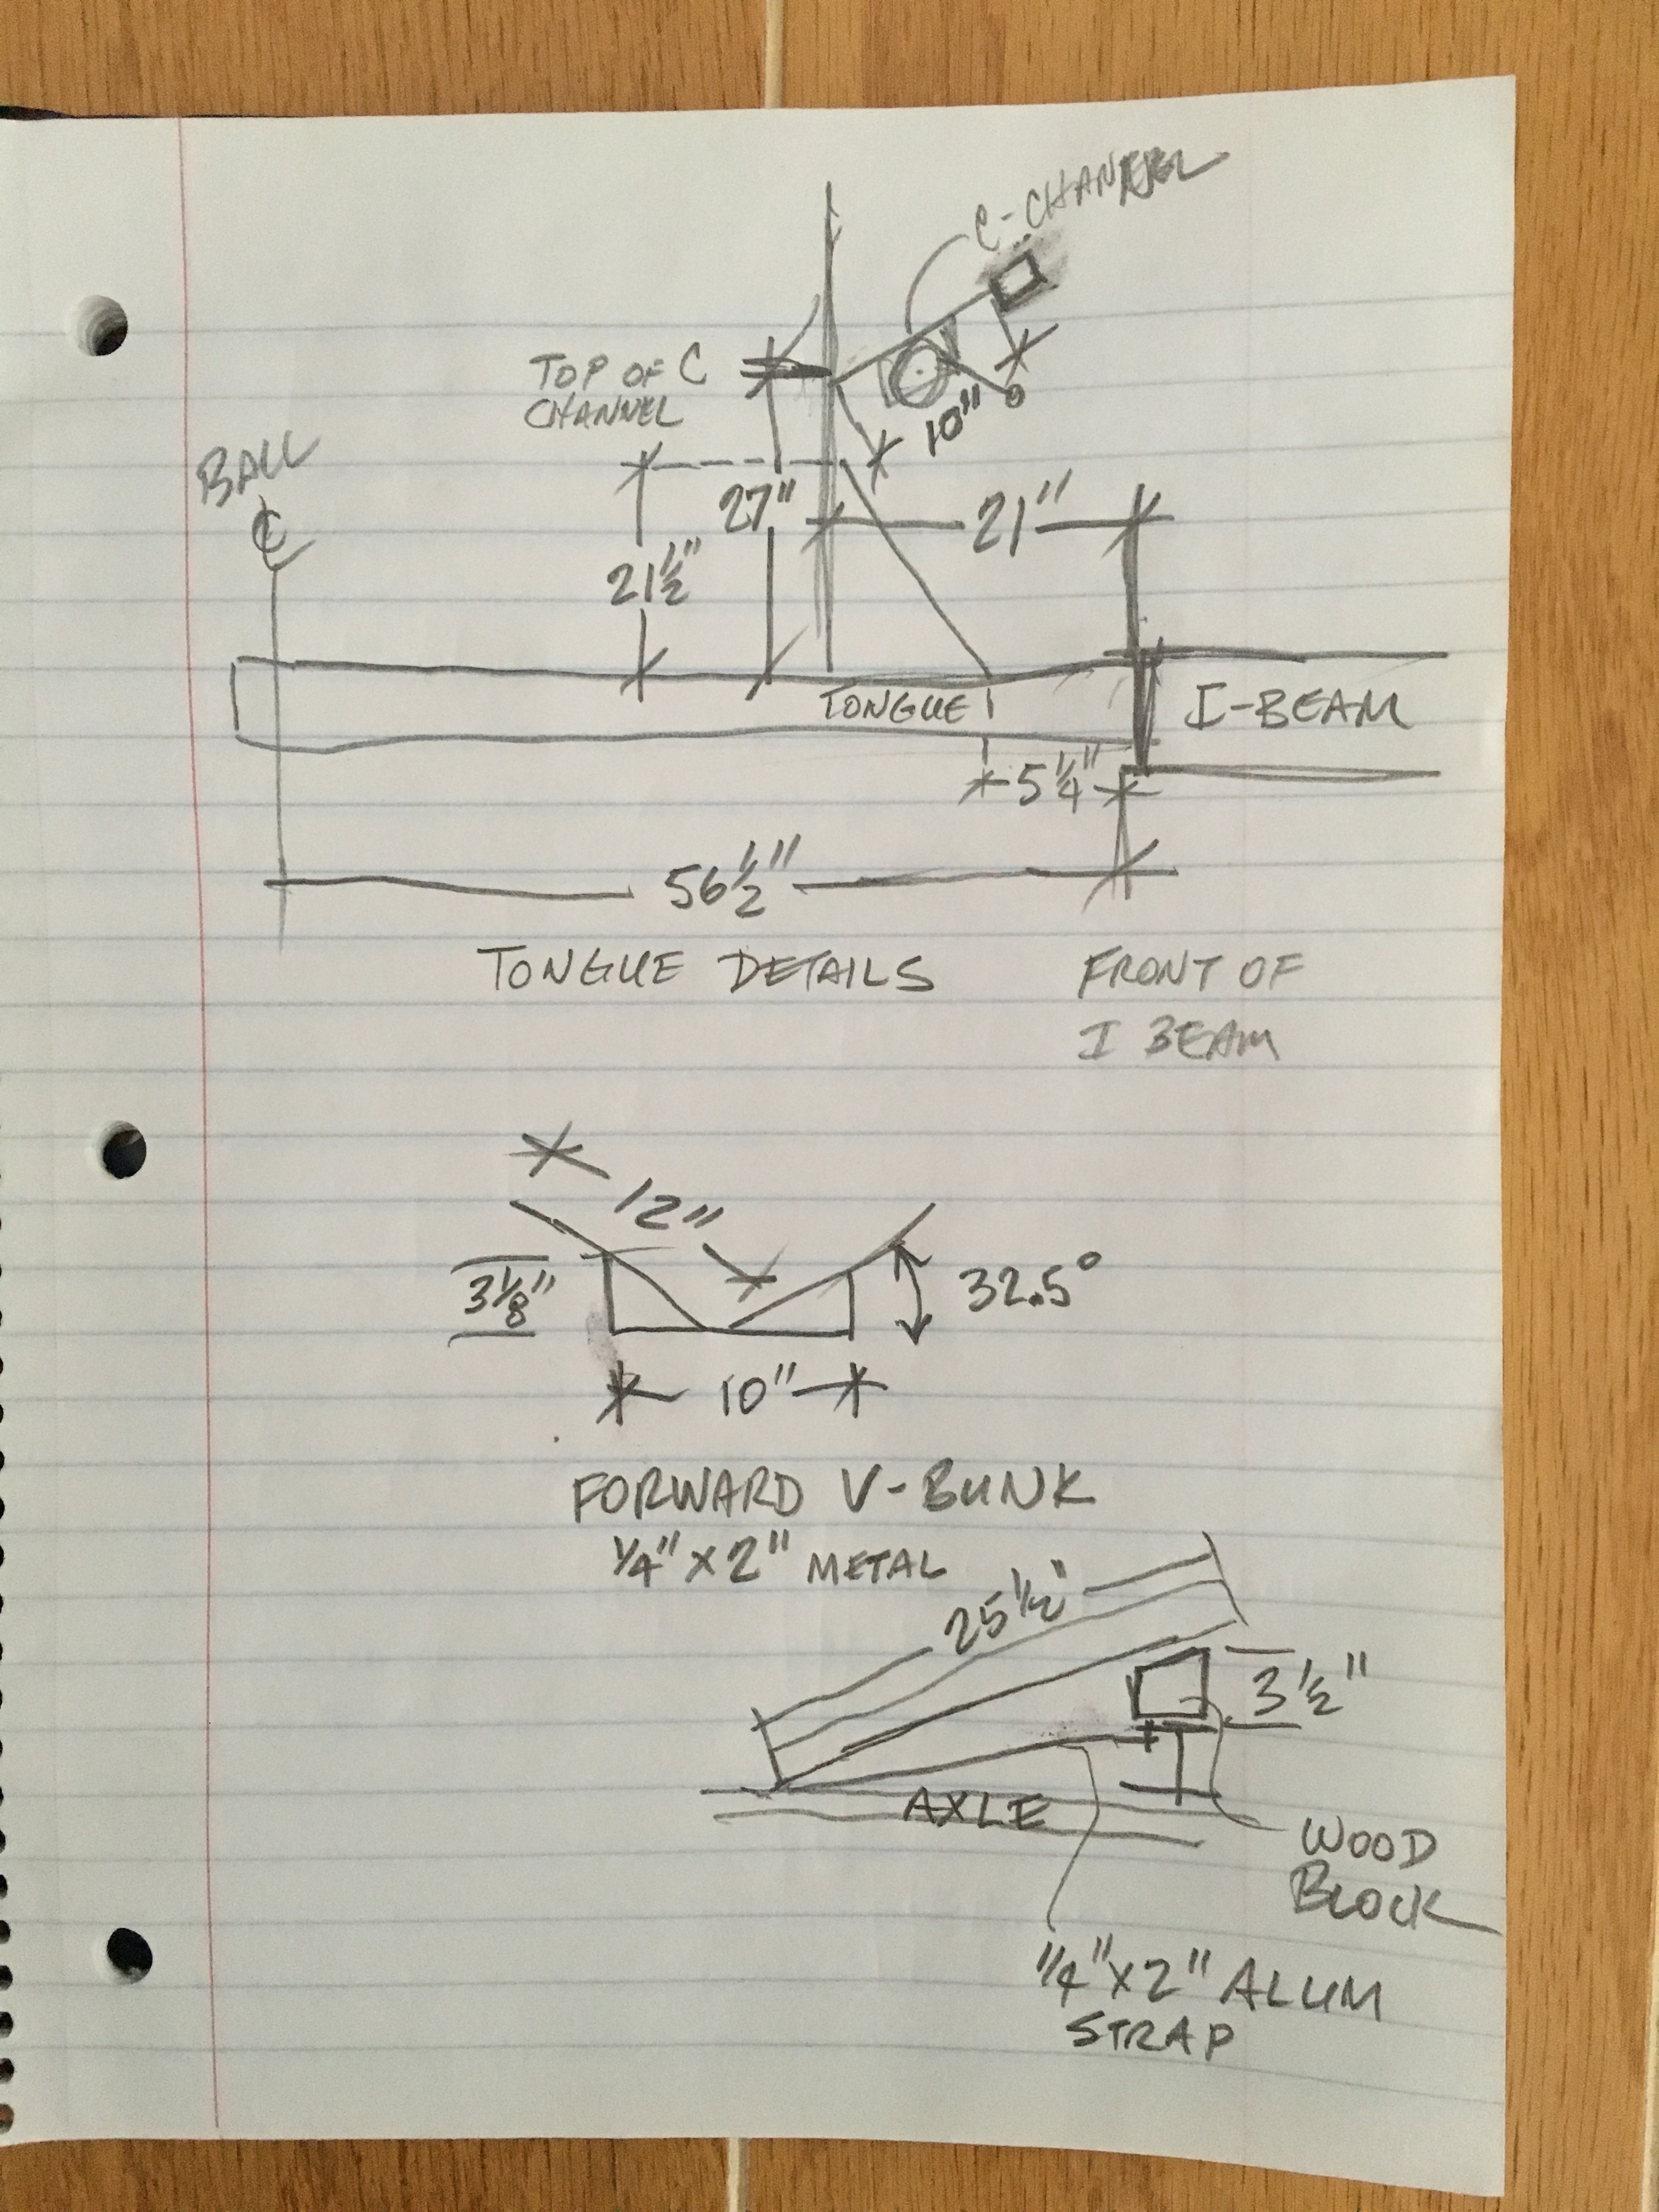 C-CHANNEL
TOP OF C
CHANNEL
10"
BALL
℄
27"
21"
21½"
TONGUE
I-BEAM
5¼"
56½"
TONGUE DETAILS
FRONT OF
I BEAM
12"
3⅛"
32.5°
10"
FORWARD V-BUNK
¼" X 2" METAL
25½"
3½"
AXLE
WOOD
BLOCK
¼" X 2" ALUM
STRAP